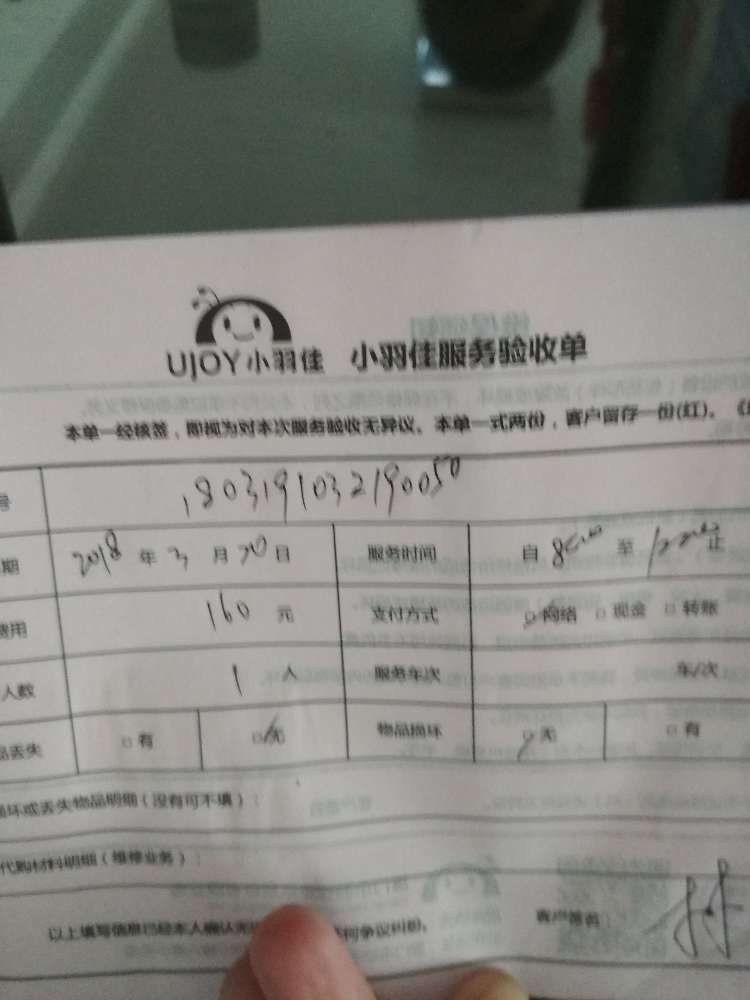 UJOY小羽佳 小羽佳服务验收单
本单一经核签，即视为对本次服务验收无异议。本单一式两份，客户留存一份(红)。
号 1803191032190050
期 2018年3月20日 服务时间 自 8:00 至 止
费用 160元 支付方式 网络 □现金 □转账
人数 1人 服务车次 车/次
品丢失 □有 □无 物品损坏 无 □有
损坏或丢失物品明细（没有可不填）：
代购材料明细（维修业务）：
以上填写信息已经本人确认无 何争议纠纷。 客户签名：